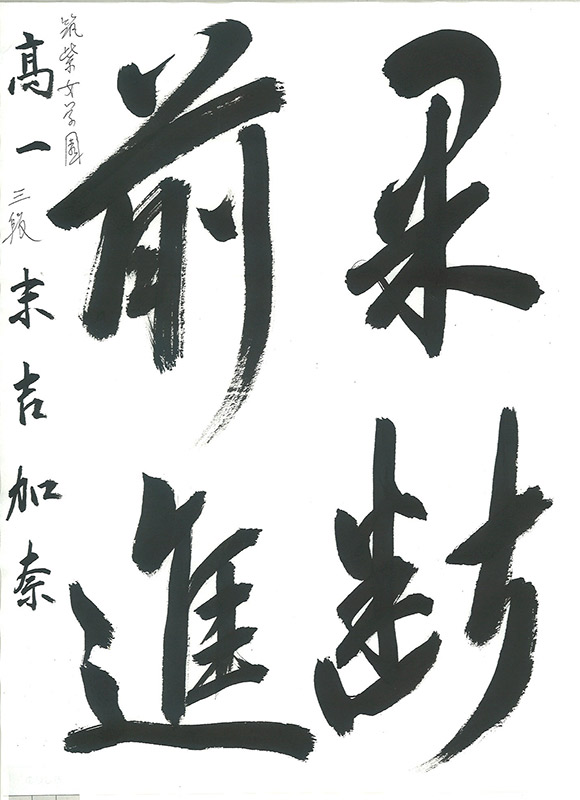 果断
前進
筑紫女学園
高一 三段 末吉加奈